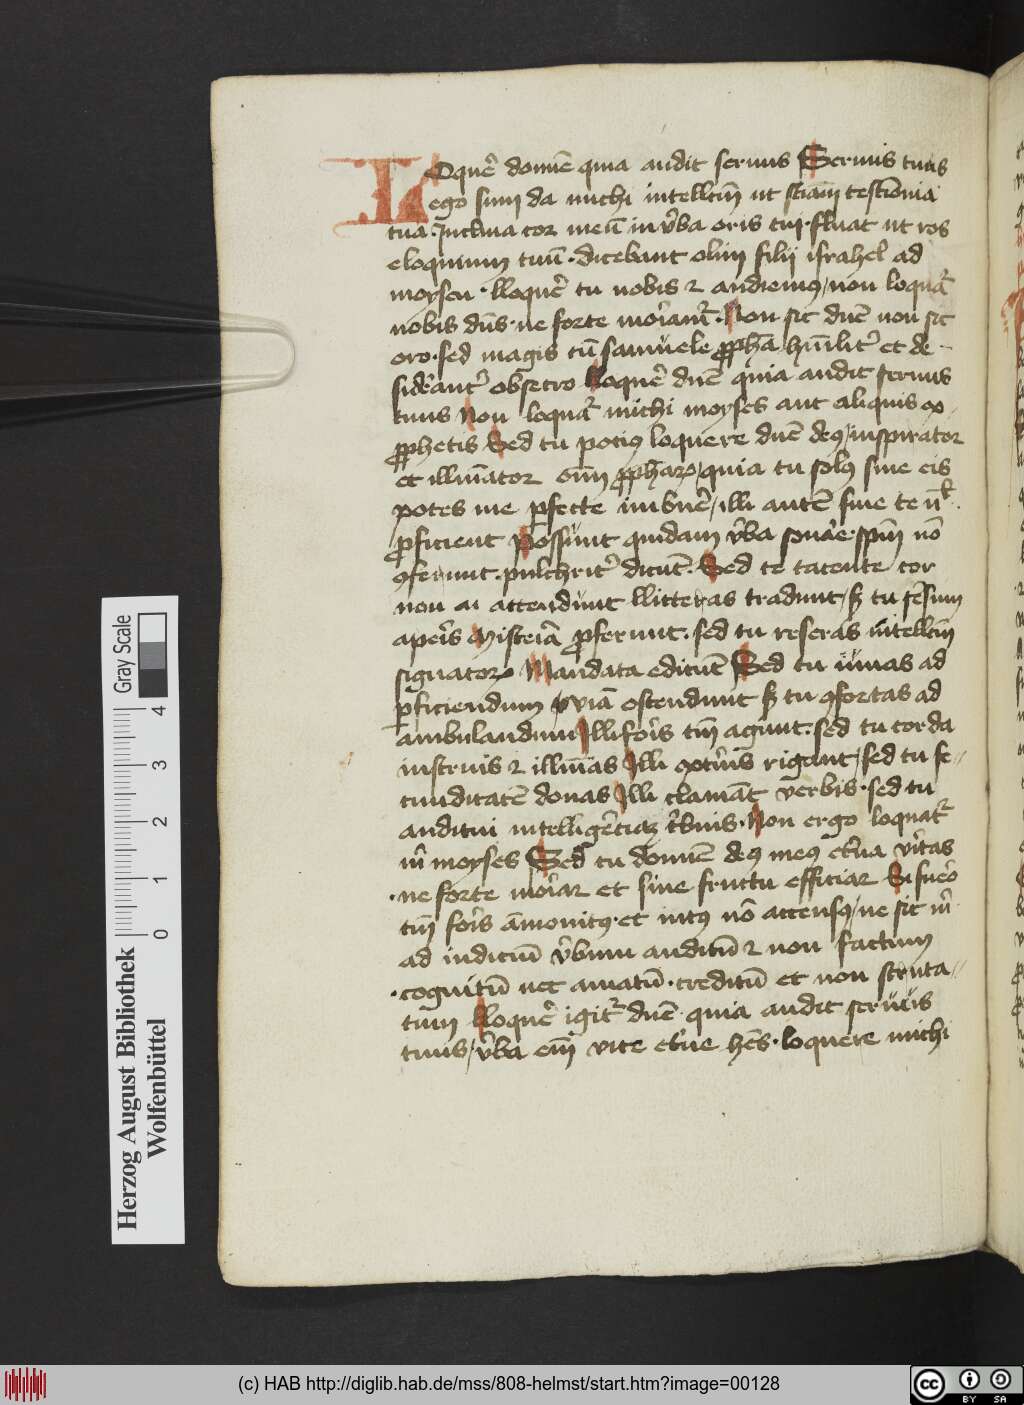 LOquer̄ domīe quia audit seruus Seruus tuus
ego sum da michi intellc̄m ut sciam testīonia
tua. Inclina cor meū in v̄ba oris tui. fluat ut ros
eloquium tuū. dicebant olim filij israhel ad
moysen. lloquer̄ tu nobis ⁊ audiemꝰ / non loquat᷑
nobis dn̄s. ne forte moriamr̄. Non sic dn̄e non sic
oro. sed magis cū samuele ꝓpha hūilit̄ et de-
siderant̄ obsecro lloquer̄ dn̄e quia audit seruus
tuus Non loquat᷑ michi moyses aut aliquis ex
ꝓphetis Sed tu potiꝰ loquere dn̄e deꝰ / inspirator
et illuīator om̄ ꝓpharꝝ / quia tu solꝰ sine eis
potes me ꝑfecte imbuer̄ / illi autē sine te nł
ꝓficient Possunt quidam v̄ba sonare. spm̄ nō
ꝯferunt. pulchrit̄ dicūt. Sed te tacente cor
non ac attendunt llitteras tradunt / sꝫ tu sēsum
aperis Misteīa ꝓferunt. sed tu reseras intellc̄m
signatorꝝ Mandata edicūt Sed tu iuuas ad
ꝑficiendum vviā ostendunt sꝫ tu ꝯfortas ad
ambulandum Illi foris tm̄ agunt. sed tu corda
instruis ⁊ illuīas Illi exterīs rigant / sed tu fe-
cunditatē donas Illi clamāt verbis. sed tu
auditui intelligēciaꝫ tr̄buis. Non ergo loquat᷑
m̄ moyses Sed tu domīe deꝰ meꝰ et̄na v̄itas
. ne forte moriar et sine fructu efficiar Si fuero
tm̄ foris āmonitꝰ. et intꝰ nō accensꝰ / ne sit m̄
ad iudiciū v̄bum auditū ⁊ non factum
. cognitū nec amatū. creditū et non serua-
tum lloquer̄ igit᷑ dn̄e. quia audit seruus
tuus / v̄ba em̄ vite et̄ne hēs. loquere michi
Herzog August Bibliothek
Wolfenbüttel
Gray Scale
0 1 2 3 4
(c) HAB http://diglib.hab.de/mss/808-helmst/start.htm?image=00128
cc BY SA